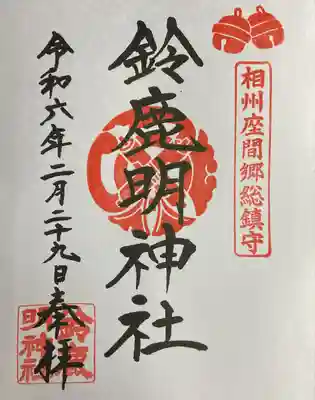 相州座間郷総鎮守
鈴鹿明神社
令和六年二月二十九日奉拝
鈴鹿
明神社